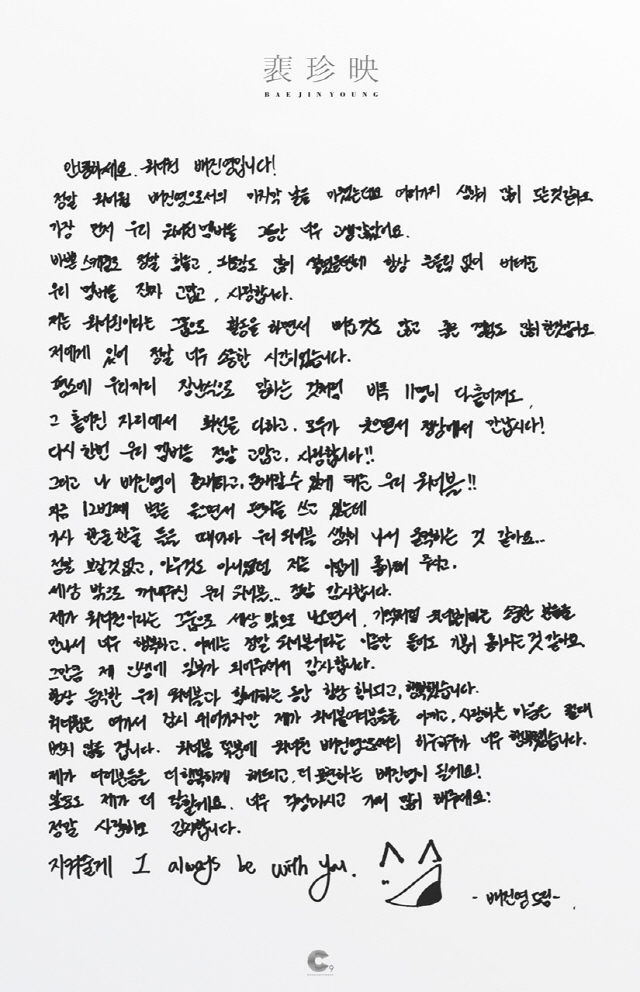 裵珍映
BAEJINYOUNG
안녕하세요. 워너원 배진영입니다!
정말 워너원 배진영으로서의 마지막 날을 마쳤는데요 여러가지 생각이 많이 드는것같아요
가장 먼저 우리 워너원멤버들 그동안 너무 고생많았어요.
바쁜 스케줄로 정말 힘들고, 많이 항상 흔들림 없이 버텨준
우리 멤버들 진짜 고맙고, 사랑합니다.
저는 워너원이라는 그룹으로 활동을 하면서 배운것도 많고 좋은 경험도 많이한것같아요
저에게 있어 정말 너무 소중한 시간이었습니다.
평소에 우리끼리 장난식으로 말하는 것처럼 비록 11명이 다흩어져도,
그 흩어진 자리에서 최선을 다하고, 모두가 웃으면서 정상에서 만납시다!
다시한번 우리 멤버들 정말 고맙고, 사랑합니다!!
그리고 나 배진영이 존재하고, 존재할수 있게 해준 우리 워너블!!
지금 12번째 별을 들으면서 편지를 쓰고 있는데
가사 한줄한줄 들을 때마다 우리워너블 생각이 나서 울컥하는 것 같아요..
정말 보잘것없고, 아무것도 아니었던 저를 이렇게 좋아해 주고,
세상 밖으로 꺼내주신 우리 워너블... 정말 감사합니다.
제가 워너원이라는 그룹으로 세상 밖으로 나오면서, 기적처럼 워너블이라는 소중한 분들을
만나서 너무 행복하고, 이제는 정말 워너블이라는 이름만 들어도 기분이 좋아지는것 같아요
그만큼 제 인생에 일부가 되어주셔서 감사합니다.
항상 음악한 우리 워너블과 함께하는 동안 항상 힘이되고, 행복했습니다.
워너원은 여기서 잠시 쉬어가지만 제가 워너블여러분들을 아끼고, 사랑하는 마음은 절대
변치 않을 겁니다. 워너블 덕분에 워너원 배진영으로서의 하루하루가 너무 행복했습니다.
제가 여러분들을 더행복하게 해드리고, 더 보답하는 배진영이 될게요!
앞으로 제가 더 잘할게요. 너무 걱정마시고 기대 많이 해주세요!
정말 사랑하고 감사합니다.
지켜줄게 I always be with you.
- 배진영 드림 -
C9